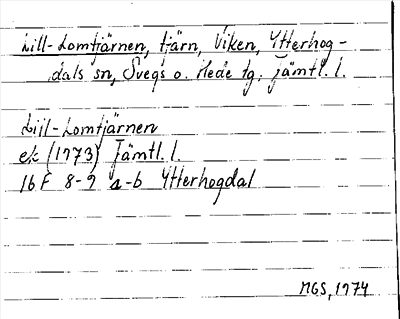 Lill-Lomtjärnen, tjärn, Viken, Ytterhog-
dals sn, Svegs o. Hede tg. Jämtl. l.
Lill-Lomtjärnen
ek (1973) Jämtl. l.
16F 8-9 a-b Ytterhogdal
MGS, 1974